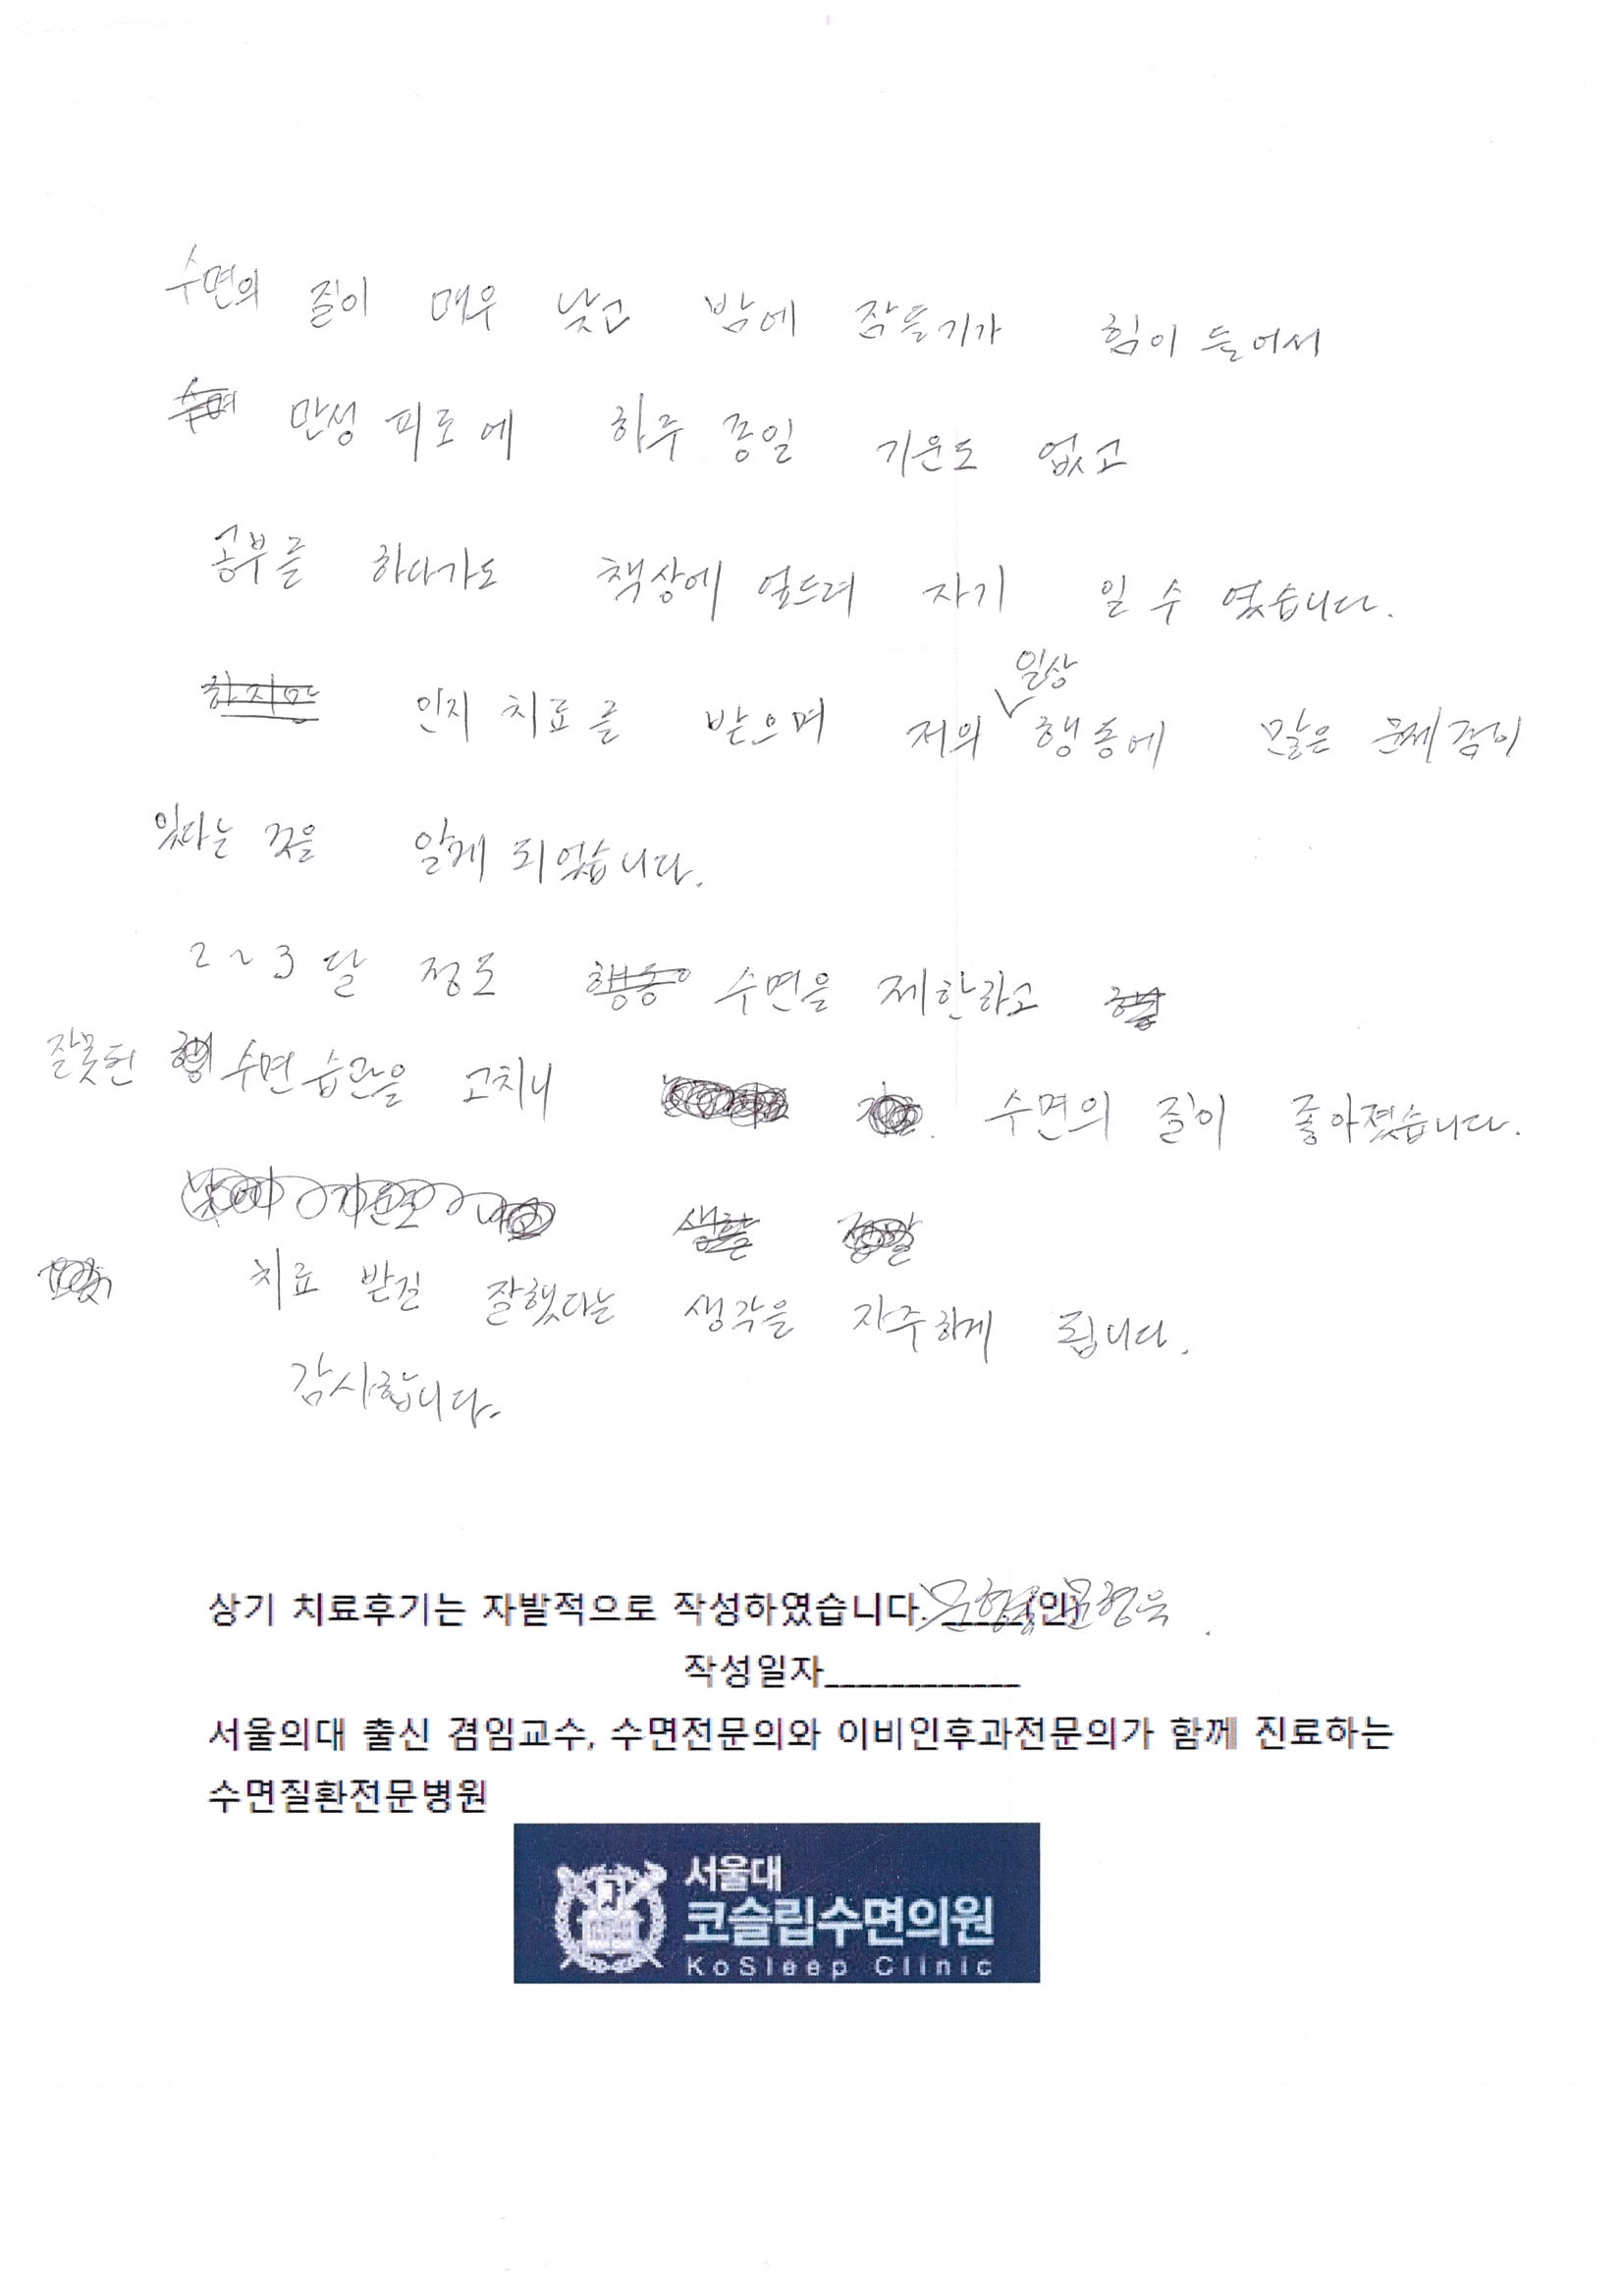 수면의 질이 매우 낮고 밤에 잠들기가 힘이 들어서
만성 피로에 하루 종일 기운도 없고
공부를 하다가도 책상에 엎드려 자기 일 수 였습니다.
하지만 인지 치료를 받으며 저의 일상 행동에 많은 문제점이
있다는 것을 알게 되었습니다.
2~3달 정도 행동 수면을 제한하고
잘못된 수면습관을 고치니 수면의 질이 좋아졌습니다.
치료 받길 잘했다는 생각을 자주하게 됩니다.
감사합니다.
상기 치료후기는 자발적으로 작성하였습니다. (인)
작성일자____________
서울의대 출신 겸임교수, 수면전문의와 이비인후과전문의가 함께 진료하는
수면질환전문병원
서울대
코슬립수면의원
KoSleep Clinic